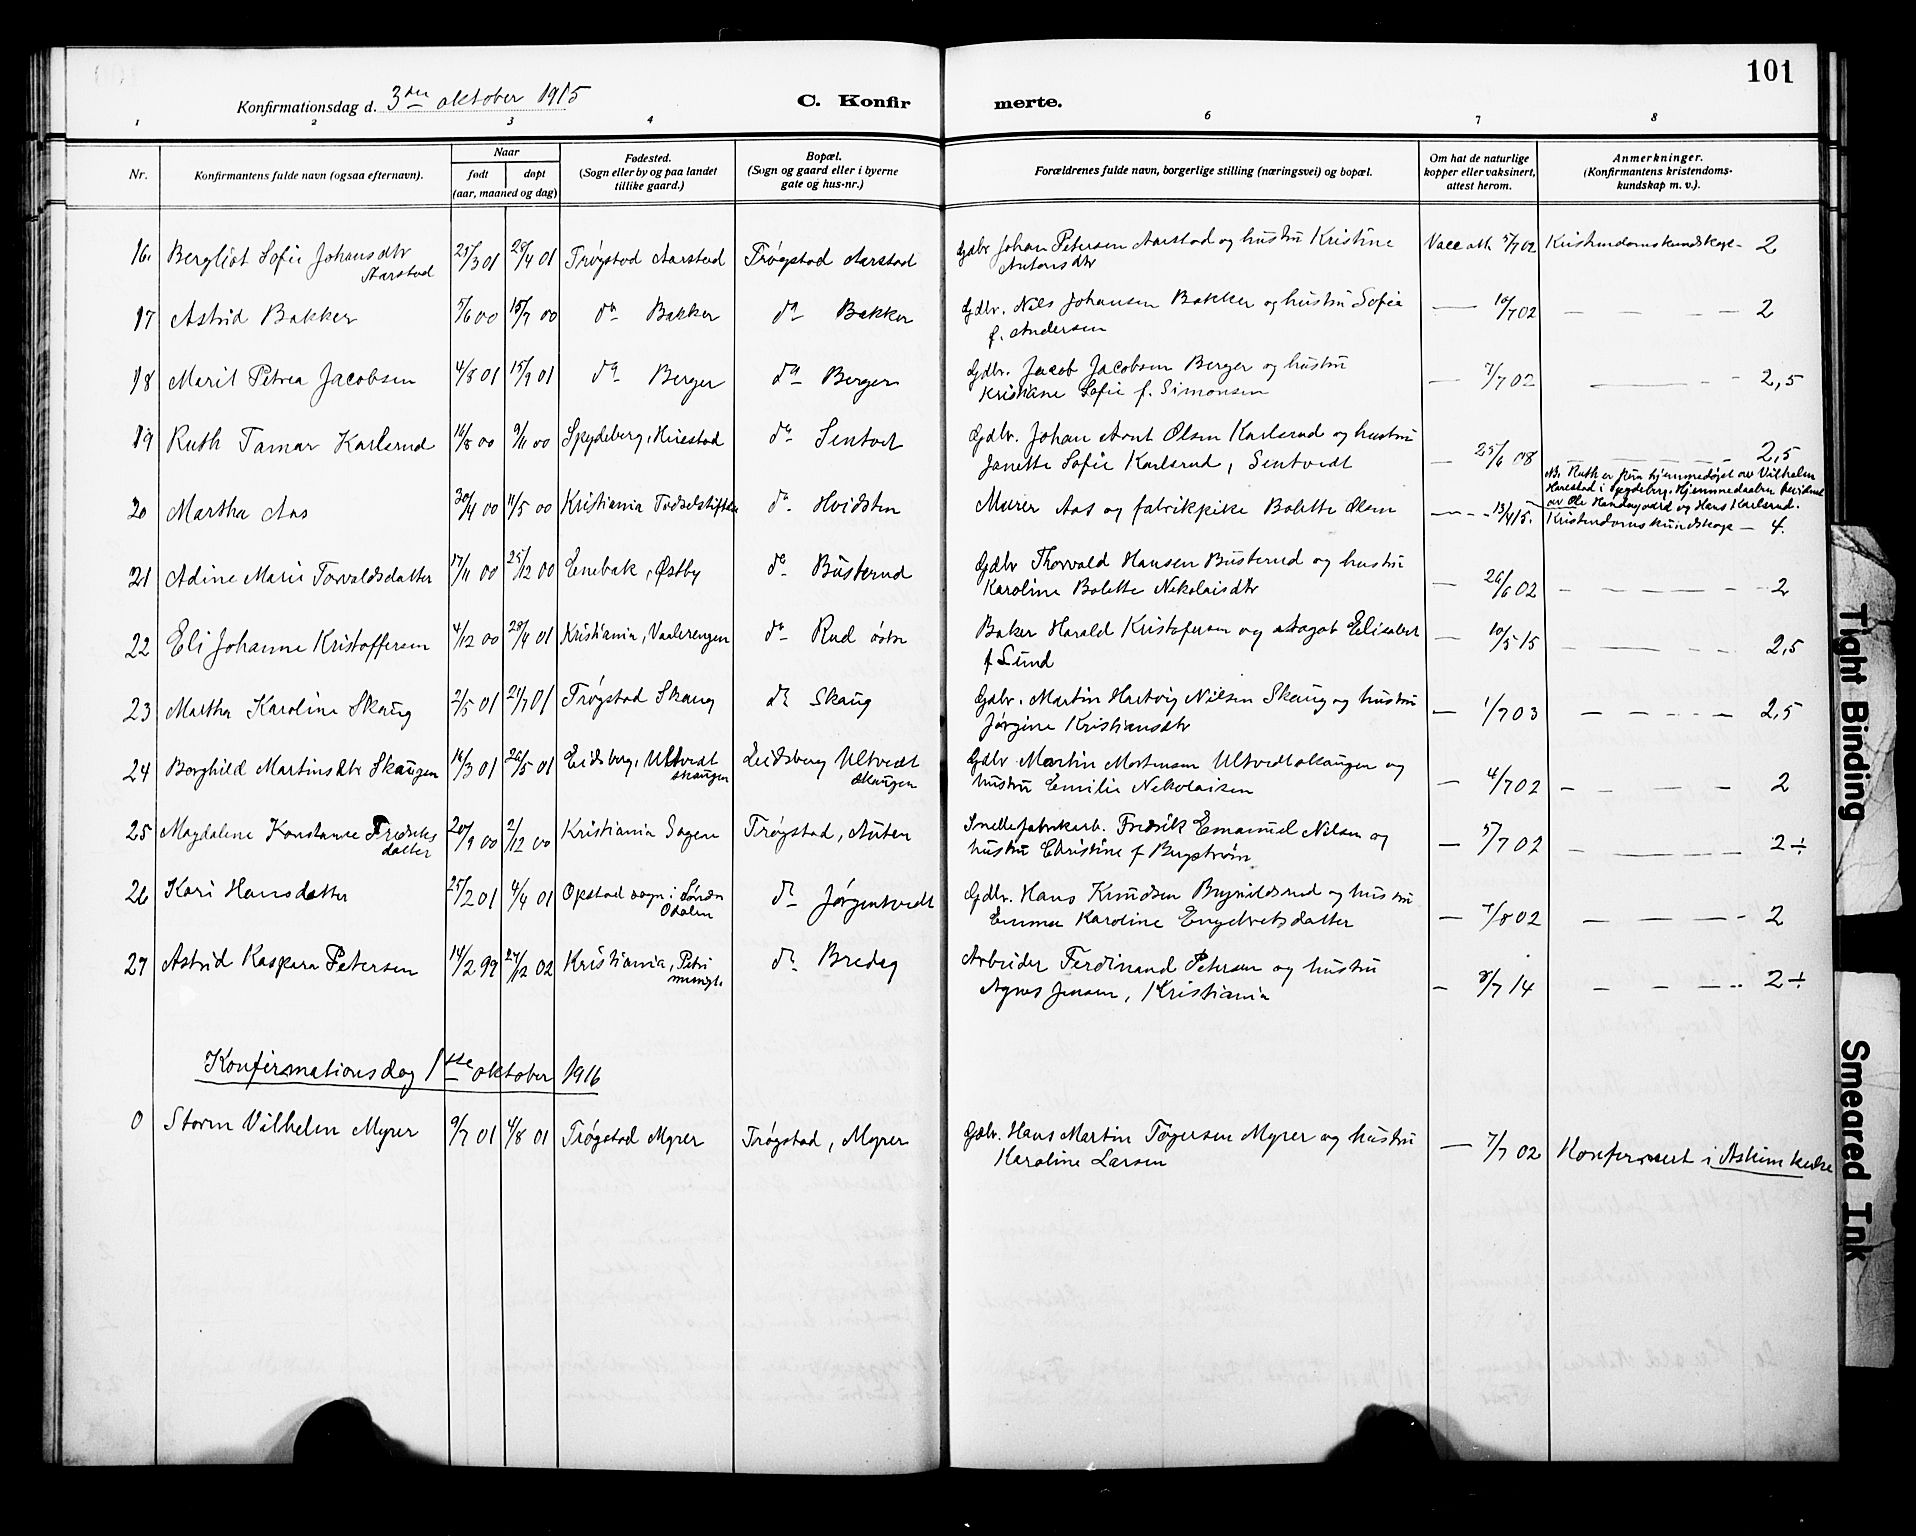 101
Konfirmationsdag d. 3den oktober 1915
C. Konfir merte.
1 2 3 4 6 7 8
Nr.
Konfirmantens fulde navn (ogsaa efternavn).
Naar
født døpt
(aar, maaned og dag)
Fødested.
(Sogn eller by og paa landet
tillike gaard.)
Bopæl.
(Sogn og gaard eller i byerne
gate og hus-nr.)
Forældrenes fulde navn, borgerlige stilling (næringsvei) og bopæl.
Om hat de naturlige
kopper eller vaksinert,
attest herom.
Anmerkninger.
(Konfirmantens kristendoms-
kundskap m. v.).
16. Bergliot Sofie Johansdtr 25/3 01 28/4 01 Trøgstad Aarstad Trøgstad Aarstad Gdbr Johan Petersen Aarstad og hustru Kristine Vacc att. 5/7 02 Kristendomskundskap - 2
Aarstad Antonsdtr
17 Astrid Bakker 5/6 00 15/7 00 do Bakker do Bakker Gdbr. Nils Johansen Bakker og hustru Sofie — 10/7 02 — — — — 2
f. Andersen
18 Marit Petrea Jacobsen 4/8 01 15/9 01 do Berger do Berger Gdbr. Jacob Jacobsen Berger og hustru — 7/7 02 — 2,5
Kristiane Sofie f. Simonsen
19 Ruth Tamar Karlsrud 16/8 00 9/11 00 Spydeberg, Hirestad do Sentvet Gdbr. Johan Arnt Olsen Karlsrud og hustru — 25/6 08 — 2,5
Janette Sofie Karlsrud, Sentvedt
NB. Ruth er kun hjemmedøpt av Vilhelm
Harestad i Spydeberg. Hjemmedaaben bevidnet
av Ole Handsgaard og Hans Karlsrud.
20 Martha Aas 30/4 00 11/5 00 Kristiania Fødselstiftelse do Hvidsten Murer Aas og fabrikpike Bolette Olsen — 13/4 15. Kristendomskundskap — 4.
21 Adine Marie Torvaldsdatter 17/11 00 25/12 00 Enebak, Østby do Busterud Gdbr Thorvald Hansen Busterud og hustru — 26/6 02 — — — — 2
Karoline Bolette Nikolaisdtr
22 Eli Johanne Kristoffersen 4/12 00 28/4 01 Kristiania, Vaalerengen do Rud østre Baker Harald Kristofersen og Elisabet — 10/5 15 — — — — 2,5
f Lund
23 Martha Karoline Skaug 2/5 01 21/7 01 Trøgstad Skaug do Skaug Gdbr. Martin Hartvig Nilsen Skaug og hustru — 1/7 03 — — — — 2,5
Jørgine Kristiansdtr
24 Borghild Martinsdtr Skaugen 16/3 01 26/5 01 Eidsberg, Ultvedt Eidsberg Ultvedt Gdbr Martin Mortensen Ultvedtskaugen og — 4/7 02 — — — — 2
skaugen skaugen hustru Emilie Nikolaisen
25 Magdalene Konstance Fredriks 20/9 00 2/12 00 Kristiania Sagene Trøgstad, Auten Snellefabrikarb. Fredrik Emanuel Nilsen og — 5/7 02 — — — — 2÷
datter hustru Christine f Bergstrøm
26 Kari Hansdatter 25/2 01 4/4 01 Opstad sogn i Søndre do Jørgentvedt Gdbr. Hans Knudsen Brynildsrud og hustru — 7/8 02 — — — — 2
Odalen Emma Karoline Engelbretsdatter
27 Astrid Kaspara Petersen 14/2 99 27/12 02 Kristiania, Petri do Bredeg Arbeider Ferdinand Petersen og hustru — 8/7 14 — — — — 2÷
menigh. Agnes Jensen, Kristiania
Konfirmationsdag 1ste oktober 1916
0 Storm Vilhelm Myrer 9/7 01 4/8 01 Trøgstad Myrer Trøgstad, Myrer Gdbr. Hans Martin Tøgersen Myrer og hustru — 7/7 02 Konfirmert i Askim kirke
Karoline Larsen
Tight Binding
Smeared Ink